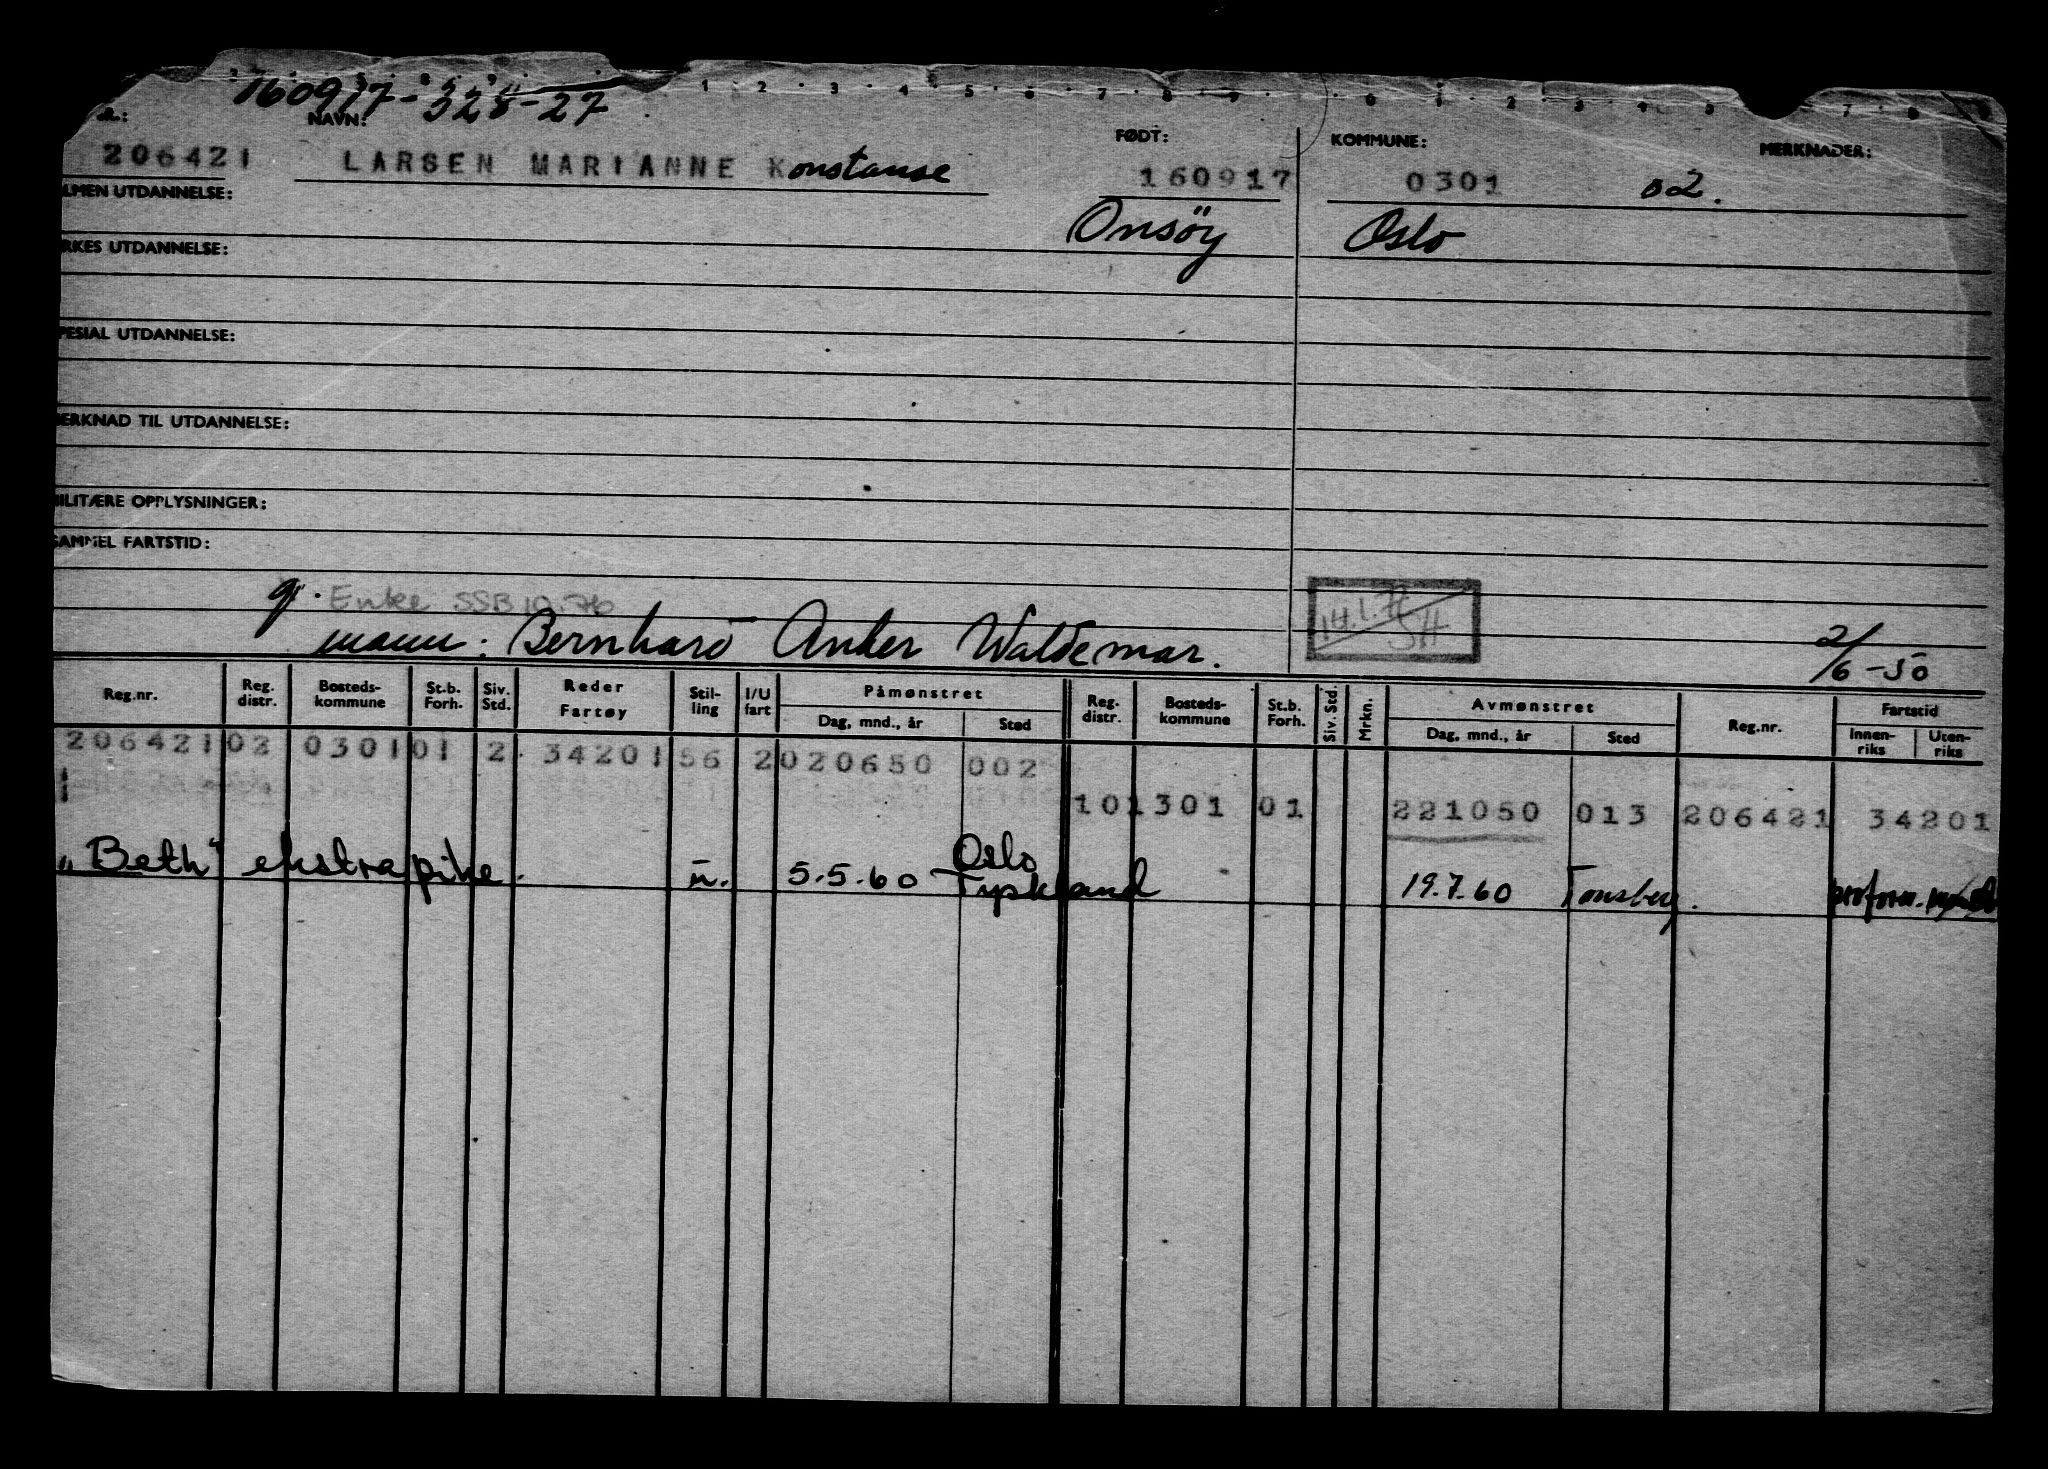 160917-328-27
R.: NAVN: FØDT: KOMMUNE: MERKNADER:
206421 LARSEN MARIANNE Konstanse 160917 0301 02.
LMEN UTDANNELSE:
Onsöy Oslo
RKES UTDANNELSE:
PESIAL UTDANNELSE:
ERKNAD TIL UTDANNELSE:
MILITÆRE OPPLYSNINGER:
SAMMEL FARTSTID:
g. Enke SSB 10.76
14.1.7 SH
mann: Bernhard Anker Waldemar. 2/6-50
Reg.nr. Reg. distr. Bosteds-kommune St.b. Forh. Siv. Std. Reder Fartøy Stil-ling I/U fart Påmønstret Dag, mnd., år Sted Reg. distr. Bosteds-kommune St.b. Forh. Siv. Std. Mrkn. Avmønstret Dag, mnd., år Sted Reg.nr. Fartstid Innen-riks Uten-riks
206421 02 0301 01 2 34201 56 2 020650 002
101301 01 221050 013 206421 34201
"Beth" ekstrapike. u. 5.5.60 Oslo Tyskland 19.7.60 Tønsberg.